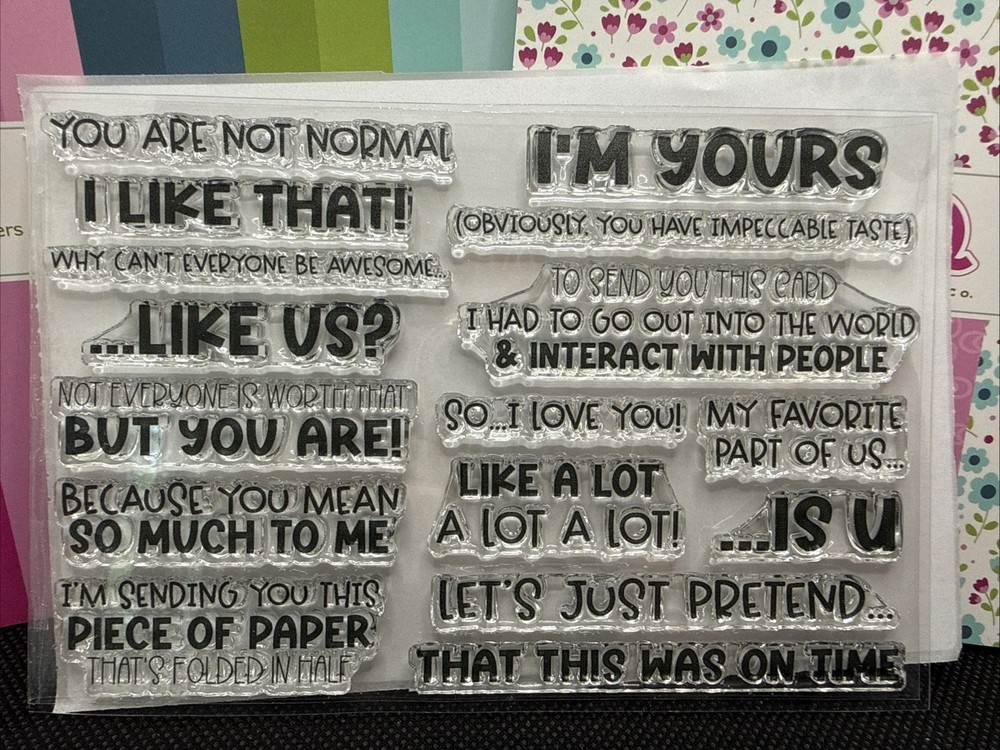 YOU ARE NOT NORMAL
I LIKE THAT!
WHY CAN'T EVERYONE BE AWESOME...
...LIKE US?
NOT EVERYONE IS WORTH THAT
BUT YOU ARE!
BECAUSE YOU MEAN
SO MUCH TO ME
I'M SENDING YOU THIS
PIECE OF PAPER
THAT'S FOLDED IN HALF
I'M YOURS
(OBVIOUSLY, YOU HAVE IMPECCABLE TASTE)
TO SEND YOU THIS CARD
I HAD TO GO OUT INTO THE WORLD
& INTERACT WITH PEOPLE
SO...I LOVE YOU!
LIKE A LOT
A LOT A LOT!
MY FAVORITE
PART OF US...
...IS U
LET'S JUST PRETEND...
THAT THIS WAS ON TIME